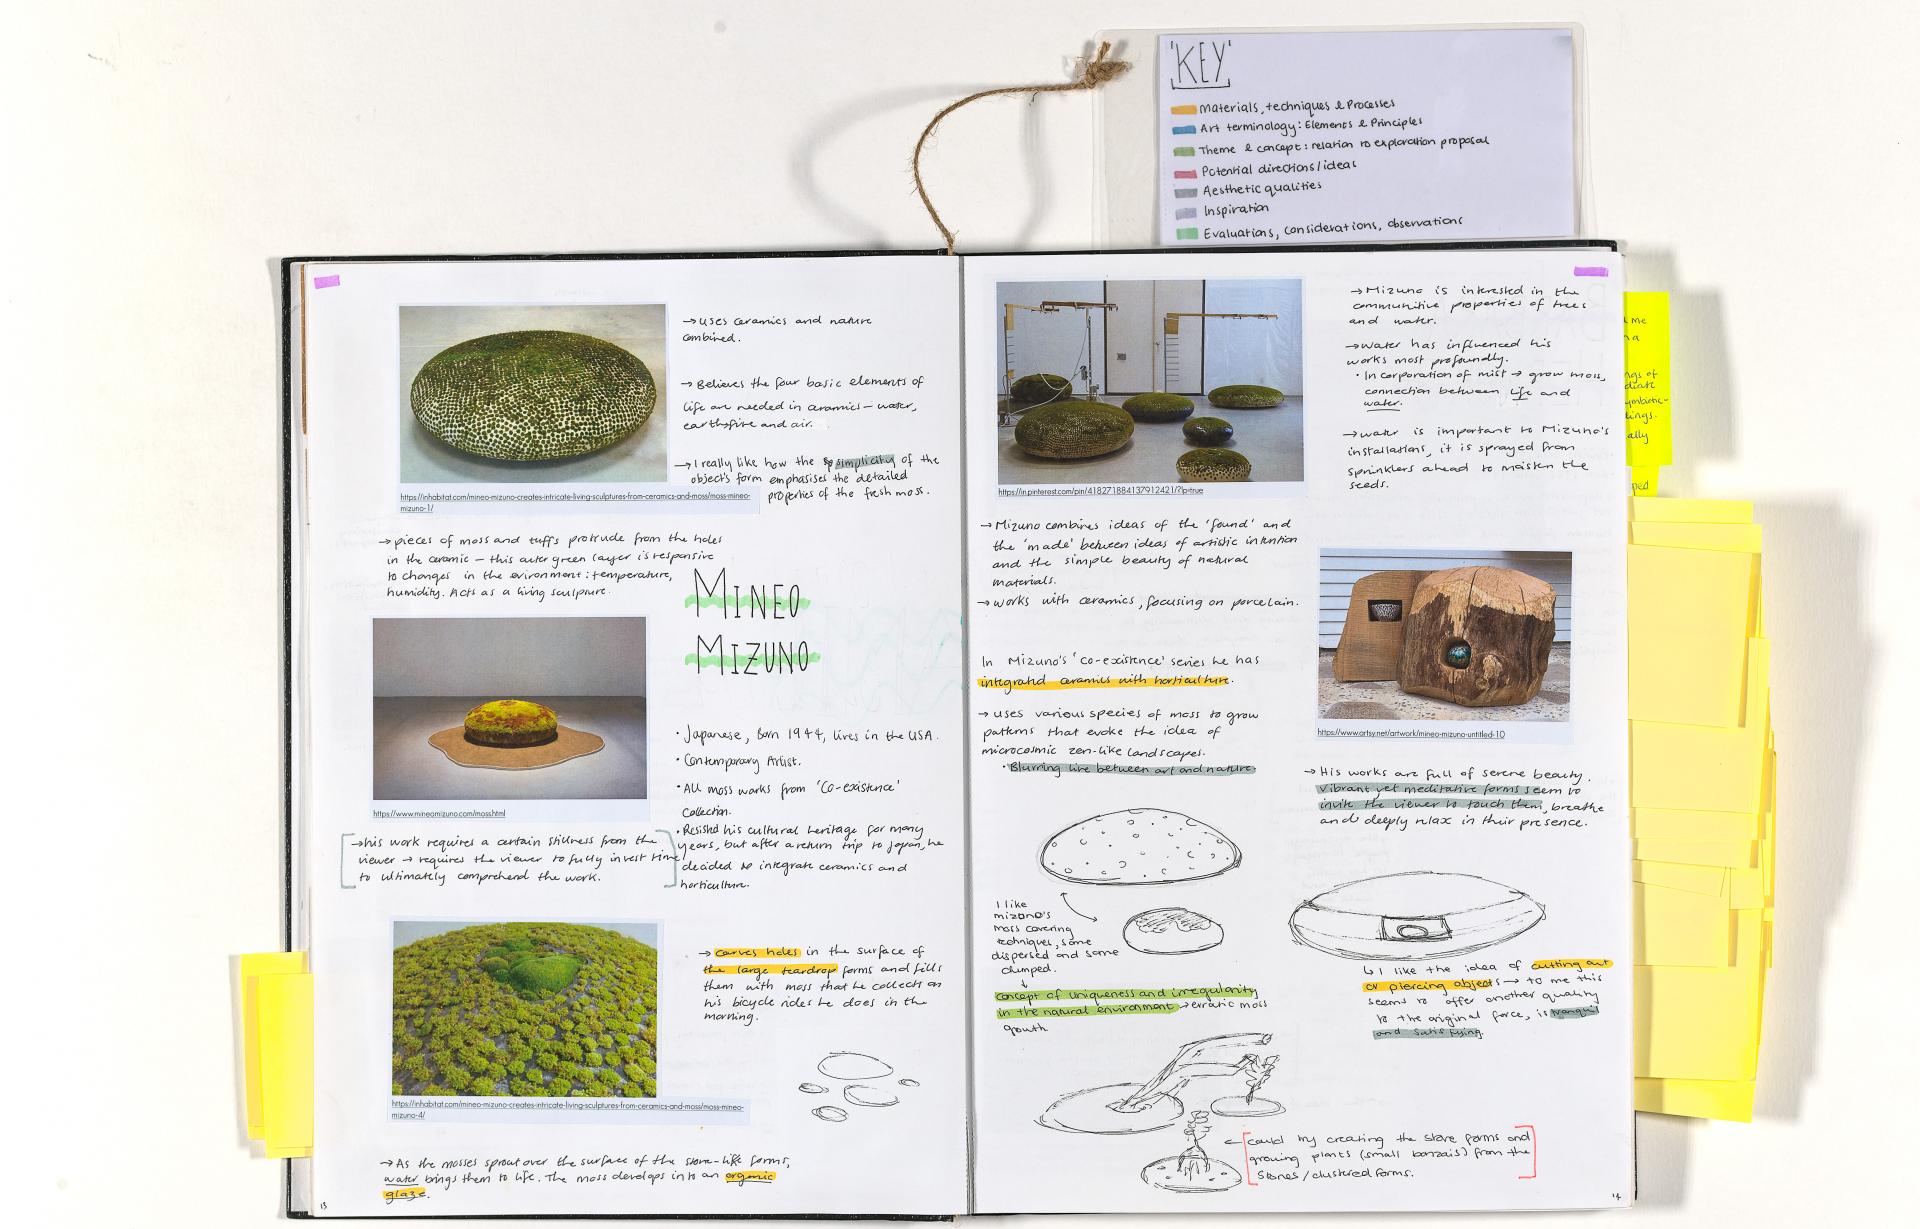 'KEY'
Materials, techniques & Processes
Art terminology: Elements & Principles
Theme & concept: relation to exploration proposal
Potential directions/ideas
Aesthetic qualities
Inspiration
Evaluations, considerations, observations
→ uses ceramics and nature
combined.
→ Believes the four basic elements of
life are needed in ceramics – water,
earth, fire and air.
→ I really like how the simplicity of the
object's form emphasises the detailed
properties of the fresh moss.
https://inhabitat.com/mineo-mizuno-creates-intricate-living-sculptures-from-ceramics-and-moss/moss-mineo-
mizuno-1/
→ pieces of moss and tuffs protrude from the holes
in the ceramic – this outer green layer is responsive
to changes in the evironment: temperature,
humidity. Acts as a living sculpture.
MINEO
MIZUNO
https://www.mineomizuno.com/moss.html
• Japanese, Born 1944, lives in the USA.
• Contemporary Artist.
• All moss works from 'Co-existence'
collection.
• Resisted his cultural heritage for many
years, but after a return trip to Japan, he
decided to integrate ceramics and
horticulture.
→ his work requires a certain stillness from the
viewer → requires the viewer to fully invest time
to ultimately comprehend the work.
→ carves holes in the surface of
the large teardrop forms and fills
them with moss that he collects on
his bicycle rides he does in the
morning.
https://inhabitat.com/mineo-mizuno-creates-intricate-living-sculptures-from-ceramics-and-moss/moss-mineo-
mizuno-4/
→ As the mosses sprout over the surface of the stone-like forms,
water brings them to life. The moss develops into an organic
glaze.
13
https://in.pinterest.com/pin/418271884137912421/?lp=true
→ Mizuno is interested in the
communitive properties of trees
and water.
→ water has influenced his
works most profoundly.
• Incorporation of mist → grow moss,
connection between life and
water.
→ water is important to Mizuno's
installations, it is sprayed from
sprinklers ahead to moisten the
seeds.
→ Mizuno combines ideas of the 'found' and
the 'made' between ideas of artistic intention
and the simple beauty of natural
materials.
→ works with ceramics, focusing on porcelain.
In Mizuno's 'co-existence' series he has
integrated ceramics with horticulture.
→ uses various species of moss to grow
patterns that evoke the idea of
microcosmic zen-like landscapes.
• Blurring line between art and nature.
https://www.artsy.net/artwork/mineo-mizuno-untitled-10
→ His works are full of serene beauty.
vibrant yet meditative forms seem to
invite the viewer to touch them, breathe
and deeply relax in their presence.
I like
mizuno's
moss covering
techniques, some
dispersed and some
clumped.
↓
concept of uniqueness and irregularity
in the natural environment → erratic moss
growth
↳ I like the idea of cutting out
or piercing objects → to me this
seems to offer another quality
to the original force, is tranquil
and satisfying.
← could try creating the stone forms and
growing plants (small bonzais) from the
stones/clustered forms.
14